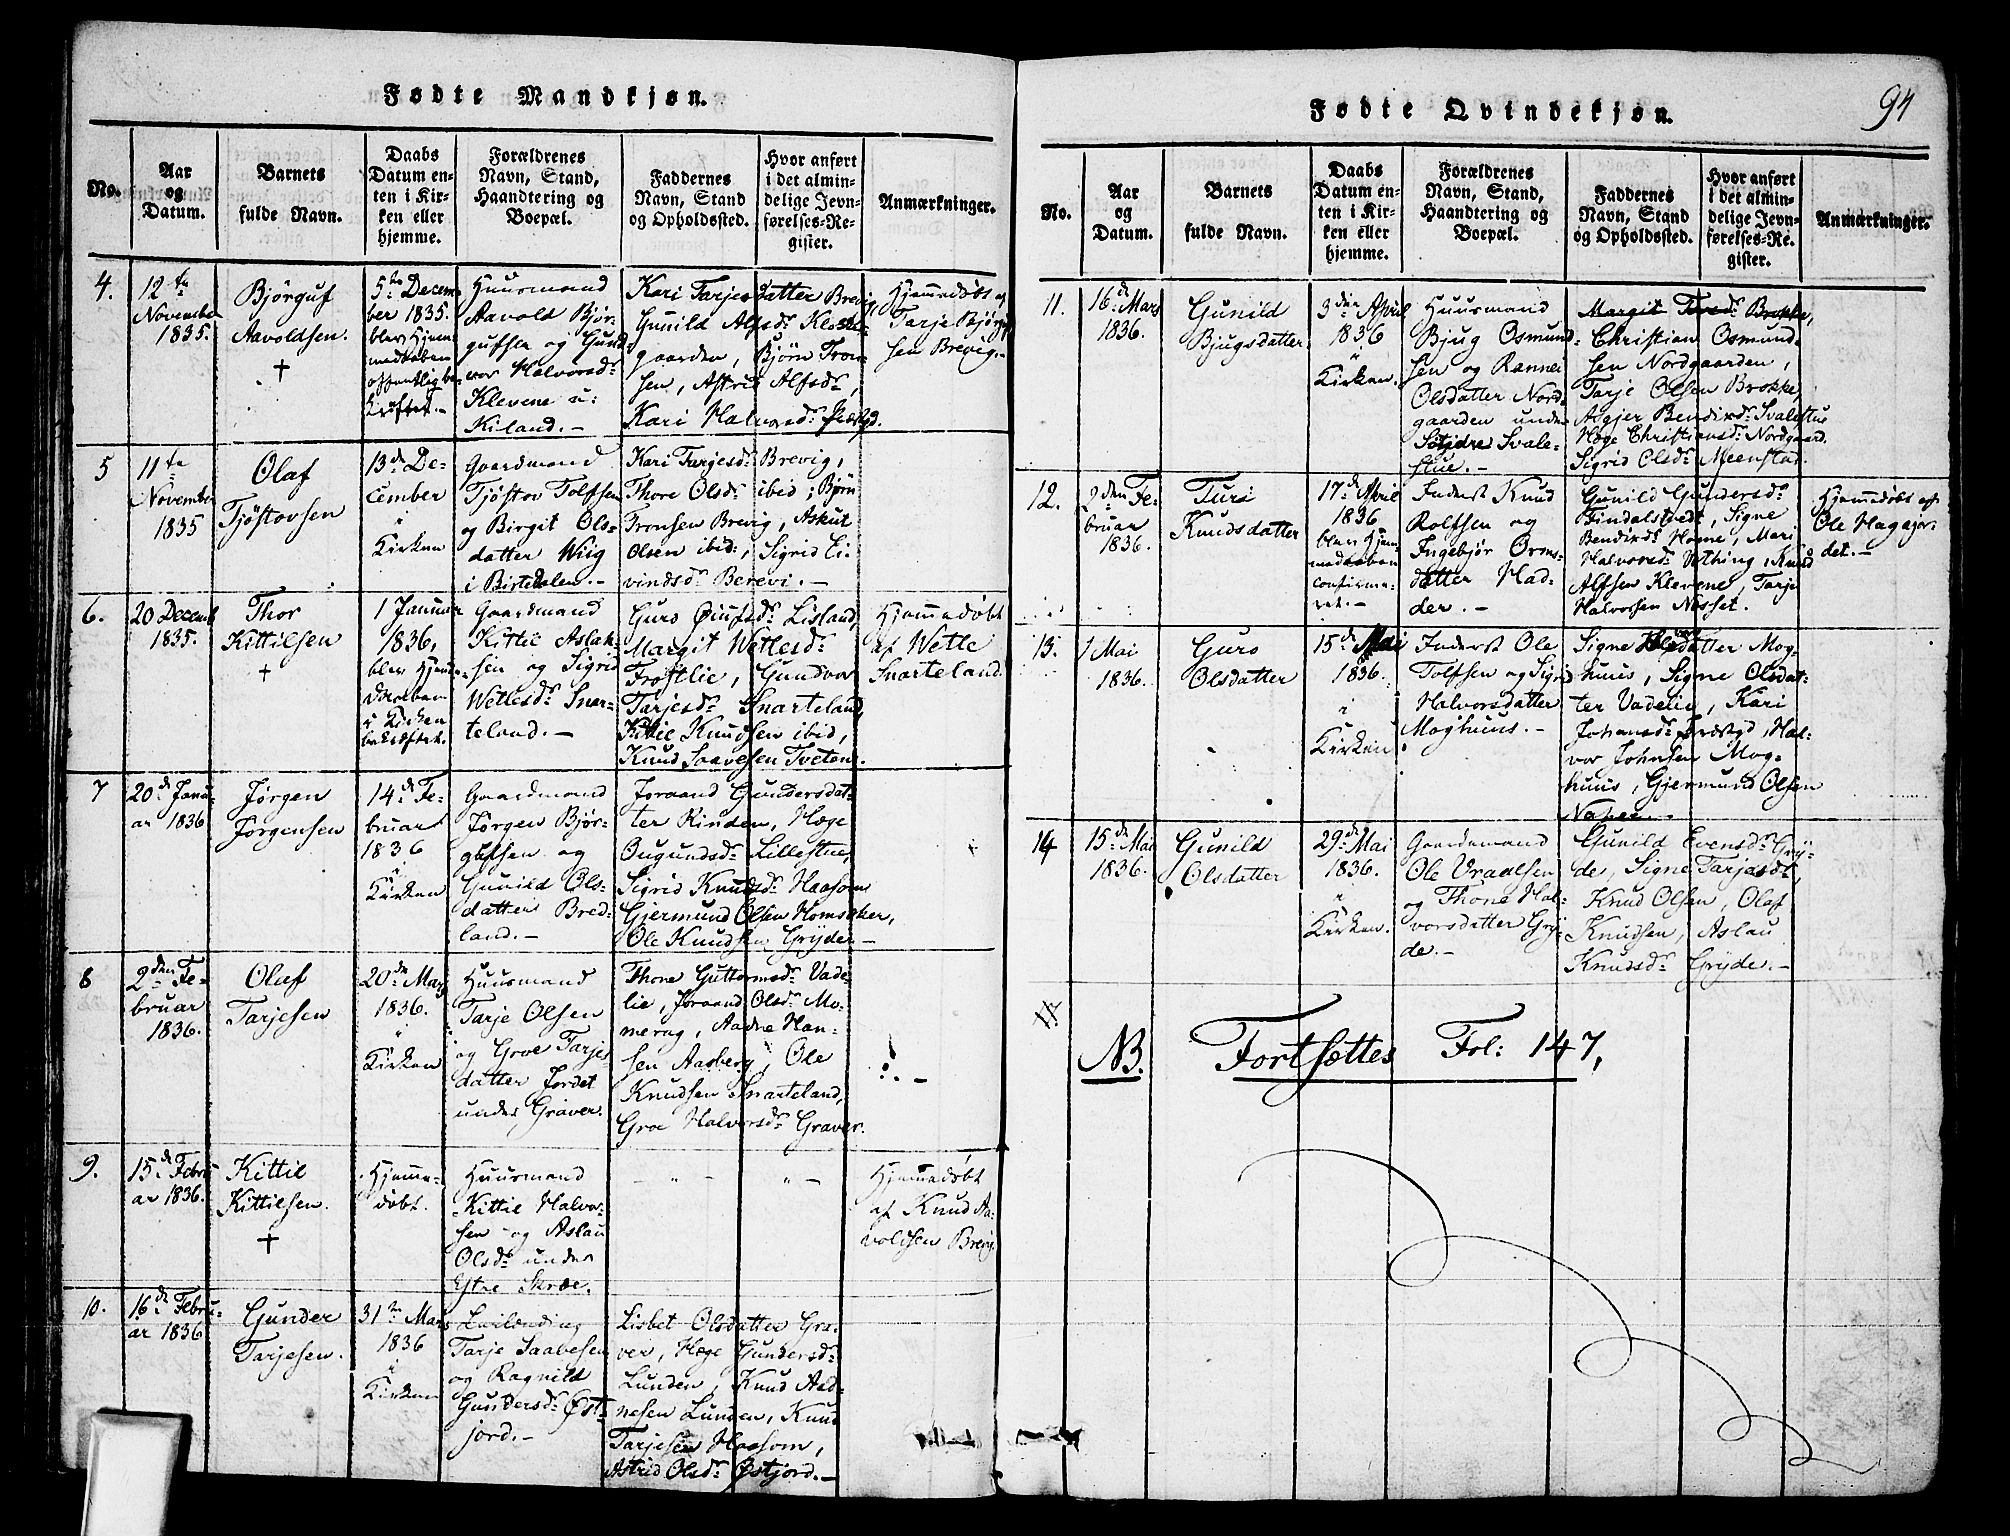 Fødte Mandkjøn.
No.
Aar
og
Datum.
Barnets
fulde Navn.
Daabs
Datum en-
ten i Kir-
ken eller
hjemme.
Forældrenes
Navn, Stand,
Haandtering og
Boepæl.
Faddernes
Navn, Stand
og Opholdssted.
Hvor anført
i det almin-
delige Jevn-
førelses-Re-
gister.
Anmærkninger.
4.
12te
November
1835.
Bjørguf
Aavoldsen.
†
5te Decem-
ber 1835.
blev Hjem-
medaaben
offentlig be-
kræftet.-
Huusmand
Aavold Bjør-
gufsen og Gund-
vor Halvorsdr
Klevene u:
Kiland.-
Kari Tarjesdatter Brevig,
Gunild Alfsdr Kloster-
gaarden, Bjørn Tron-
sen, Astrid Alfsdr,
Kari Halvorsdr Præstgd.
Hjemmedøbt af
Tarje Bjørn-
sen Brevig.
5
11te
November
1835
Olaf
Tjøstovsen
13de De-
cember
i
Kirken
Gaardmand
Tjøstov Tolfsen
og Birgit Ols-
datter Wiig
i Birtedalen.-
Kari Tarjesdr Brevig,
Thore Olsdr ibid; Bjørn
Tronsen Brevig, Askut
Olsen ibid:, Sigrid Ei-
vindsdr Berevi.-
6.
20 Decemb
1835.
Thor
Kittilsen
†
1 Januar
1836,
blev Hjem-
i Kirken
bekræftet.
Gaardmand
Kittil Aslak-
sen og Sigrid
Wetlesdr Snar-
teland.-
Guro Øiufsdr Lisland,
Margit Wetlesdr
Trøftlie, Gundvor
Tarjesdr Snarteland,
Kittil Knudsen ibid,
Knud Saavesen Tveten.
Hjemmedøbt
af Wetle
Snarteland.
7
20de Janu-
ar 1836
Jørgen
Jørgensen
14de Fe-
bruar
1836
i
Kirken
Gaardmand
Jørgen Bjør-
gufsen og
Gunild Ols-
datter Bred-
land.-
Joraand Gundersdat-
ter Rinden, Hæge
Ougundsdr Lillestue,
Sigrid Knudsdr Haasom
Gjermund Olsen Homsaker,
Ole Knudsen Gryder-
8
2den Fe-
bruar
1836.
Oluf
Tarjesen
20de Mars
1836.
i
Kirken
Huusmand
Tarje Olsen
og Groe Tarjes
datter Jordet
under Graver.
Thone Guttormsdr Vade-
lie, Joraand Olsdr Mo-
merag, Aadne Han-
sen Aasberg, Ole
Knudsen Snarteland,
Groe Halvorsdr Graver.
9.
15de Febru-
ar 1836.
Kittil
Kittilsen.
†
Hjemme-
døbt.
Huusmand
Kittil Halvor-
sen og Aslau
Olsdr under
Ytre Skræe.
- " - " -
Hjemmedøbt
af Knud Aa-
voldsen Brevig
10.
16de Febru-
ar 1836
Gunder
Tarjesen.
31te Mars
1836
i
Kirken
Tarje Saavesen
og Ragnild
Gundersdr Øst-
jord.-
Lisbet Olsdatter Gra-
ver, Hæge Gundersdr
Lunden, Knud Aad-
nesen Lunden, Knud
Tarjesen Haasom,
Astrid Olsdr Østjord.-
Fødte Qvindekjøn.
94
No.
Aar
og
Datum.
Barnets
fulde Navn.
Daabs
Datum en-
ten i Kir-
ken eller
hjemme.
Forældrenes
Navn, Stand,
Haandtering og
Boepæl.
Faddernes
Navn, Stand
og Opholdssted.
Hvor anført
i det almin-
delige Jevn-
førelses-Re-
gister.
Anmærkninger.
11.
16de Mars
1836.
Gunild
Bjugsdatter
3die April
1836
i
Kirken.
Huusmand
Bjug Osmund-
sen og Rannei
Olsdatter Nord-
gaarden under
Søtjdre Svale-
stue.-
Margit Taredr Brokke,
Christian Osmund-
sen Nordgaarden,
Tarje Olsen Brokke,
Asgjer Bendixdr Svalestue
Hæge Christiansdr Nordgaard.
Sigrid Olsdr Meenstad.
12.
2den Fe-
bruar
1836.
Turi
Knudsdatter
17de April
1836
blev Hjem-
medaaben
confirme-
ret.-
Inderst Knud
Rolfsen og
Ingebjør Orms-
datter Had-
der.-
Gunild Gundersdr
Findalstvedt, Signe
Bendixdr Home, Mari
Halvorsdr Vething, Knud
Alfsen Klevene, Tarje
Halvorsen Næsset.
Hjemmedøbt af
Ole Hagajor-
det.-
13.
1 Mai
1836.
Guro
Olsdatter
15de Mai
1836.
i
Kirken
Inderst Ole
Tolfsen og Sigrid
Halvorsdatter
Moghuus.-
Signe datter Mog-
huus, Signe Olsdat-
ter Vadelie, Kari
Johansdr Præstgd, Hal-
vor Johnsen Mog-
huus, Gjermund Olsen
Naper.
14
15de Mai
1836.
Gunild
Olsdatter
29de Mai
1836.
i
Kirken.
Gaardmand
Ole Vraalsen
og Thone Hal-
vorsdatter Gry-
de.-
Gunild Evensdr Gry-
de, Signe Tarjesdr,
Knud Olsen, Olaf
Knudsen, Aslau
Knudsdr Gryde.-
NB. Fortsættes Fol: 147,